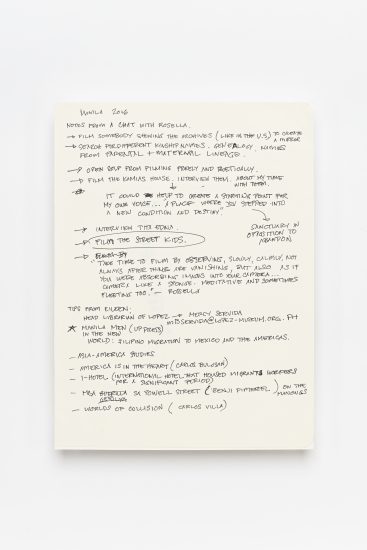 MANILA 2016
NOTES FROM A CHAT WITH ROSELLA.
→ FILM SOMEBODY SHOWING THE ARCHIVES (LIKE IN THE U.S) TO CREATE A MIRROR
→ SEARCH FOR DIFFERENT KINSHIP NAMES. GENEALOGY. NAMES
FROM PATERNAL + MATERNAL LINEAGE.
→ OPEN SELF FROM FILMING FREELY AND POETICALLY.
→ FILM THE KAMIAS HOUSE. INTERVIEW THEM, ABOUT MY TIME WITH THEM.
IT COULD HELP TO CREATE A STARTING POINT FOR
MY OWN VOICE... A PLACE WHERE YOU STEPPED INTO
A NEW CONDITION AND DESTINY"
SANCTUARY IN
OPPOSITION TO
→ INTERVIEW TITA EDNA.
→ FILM THE STREET KIDS.
"TAKE TIME TO FILM BY OBSERVING, SLOWLY, CALMLY, NOT
ALWAYS AFTER THINGS ARE VANISHING, BUT ALSO AS IF
YOU WERE ABSORBING IMAGES INTO YOUR CAMERA...
CAMERA LIKE A SPONGE. MEDITATIVE AND SOMETIMES
FLEETING TOO." — ROSELLA
TIPS FROM EILEEN:
HEAD LIBRARIAN OF LOPEZ → MERCY SERVIDA
@LOPEZ-MUSEUM.ORG.PH
★ MANILA MEN (UP PRESS)
IN THE NEW
WORLD: FILIPINO MIGRATION TO MEXICO AND THE AMERICAS.
– ASIA-AMERICA STUDIES
– AMERICA IS IN THE HEART (CARLOS BULOSAN)
– I-HOTEL (INTERNATIONAL HOTEL THAT HOUSED MIGRANTS WORKERS
FOR A SIGNIFICANT PERIOD)
– STREET (BENJI
ON THE
– WORLDS OF COLLISION (CARLOS VILLA)